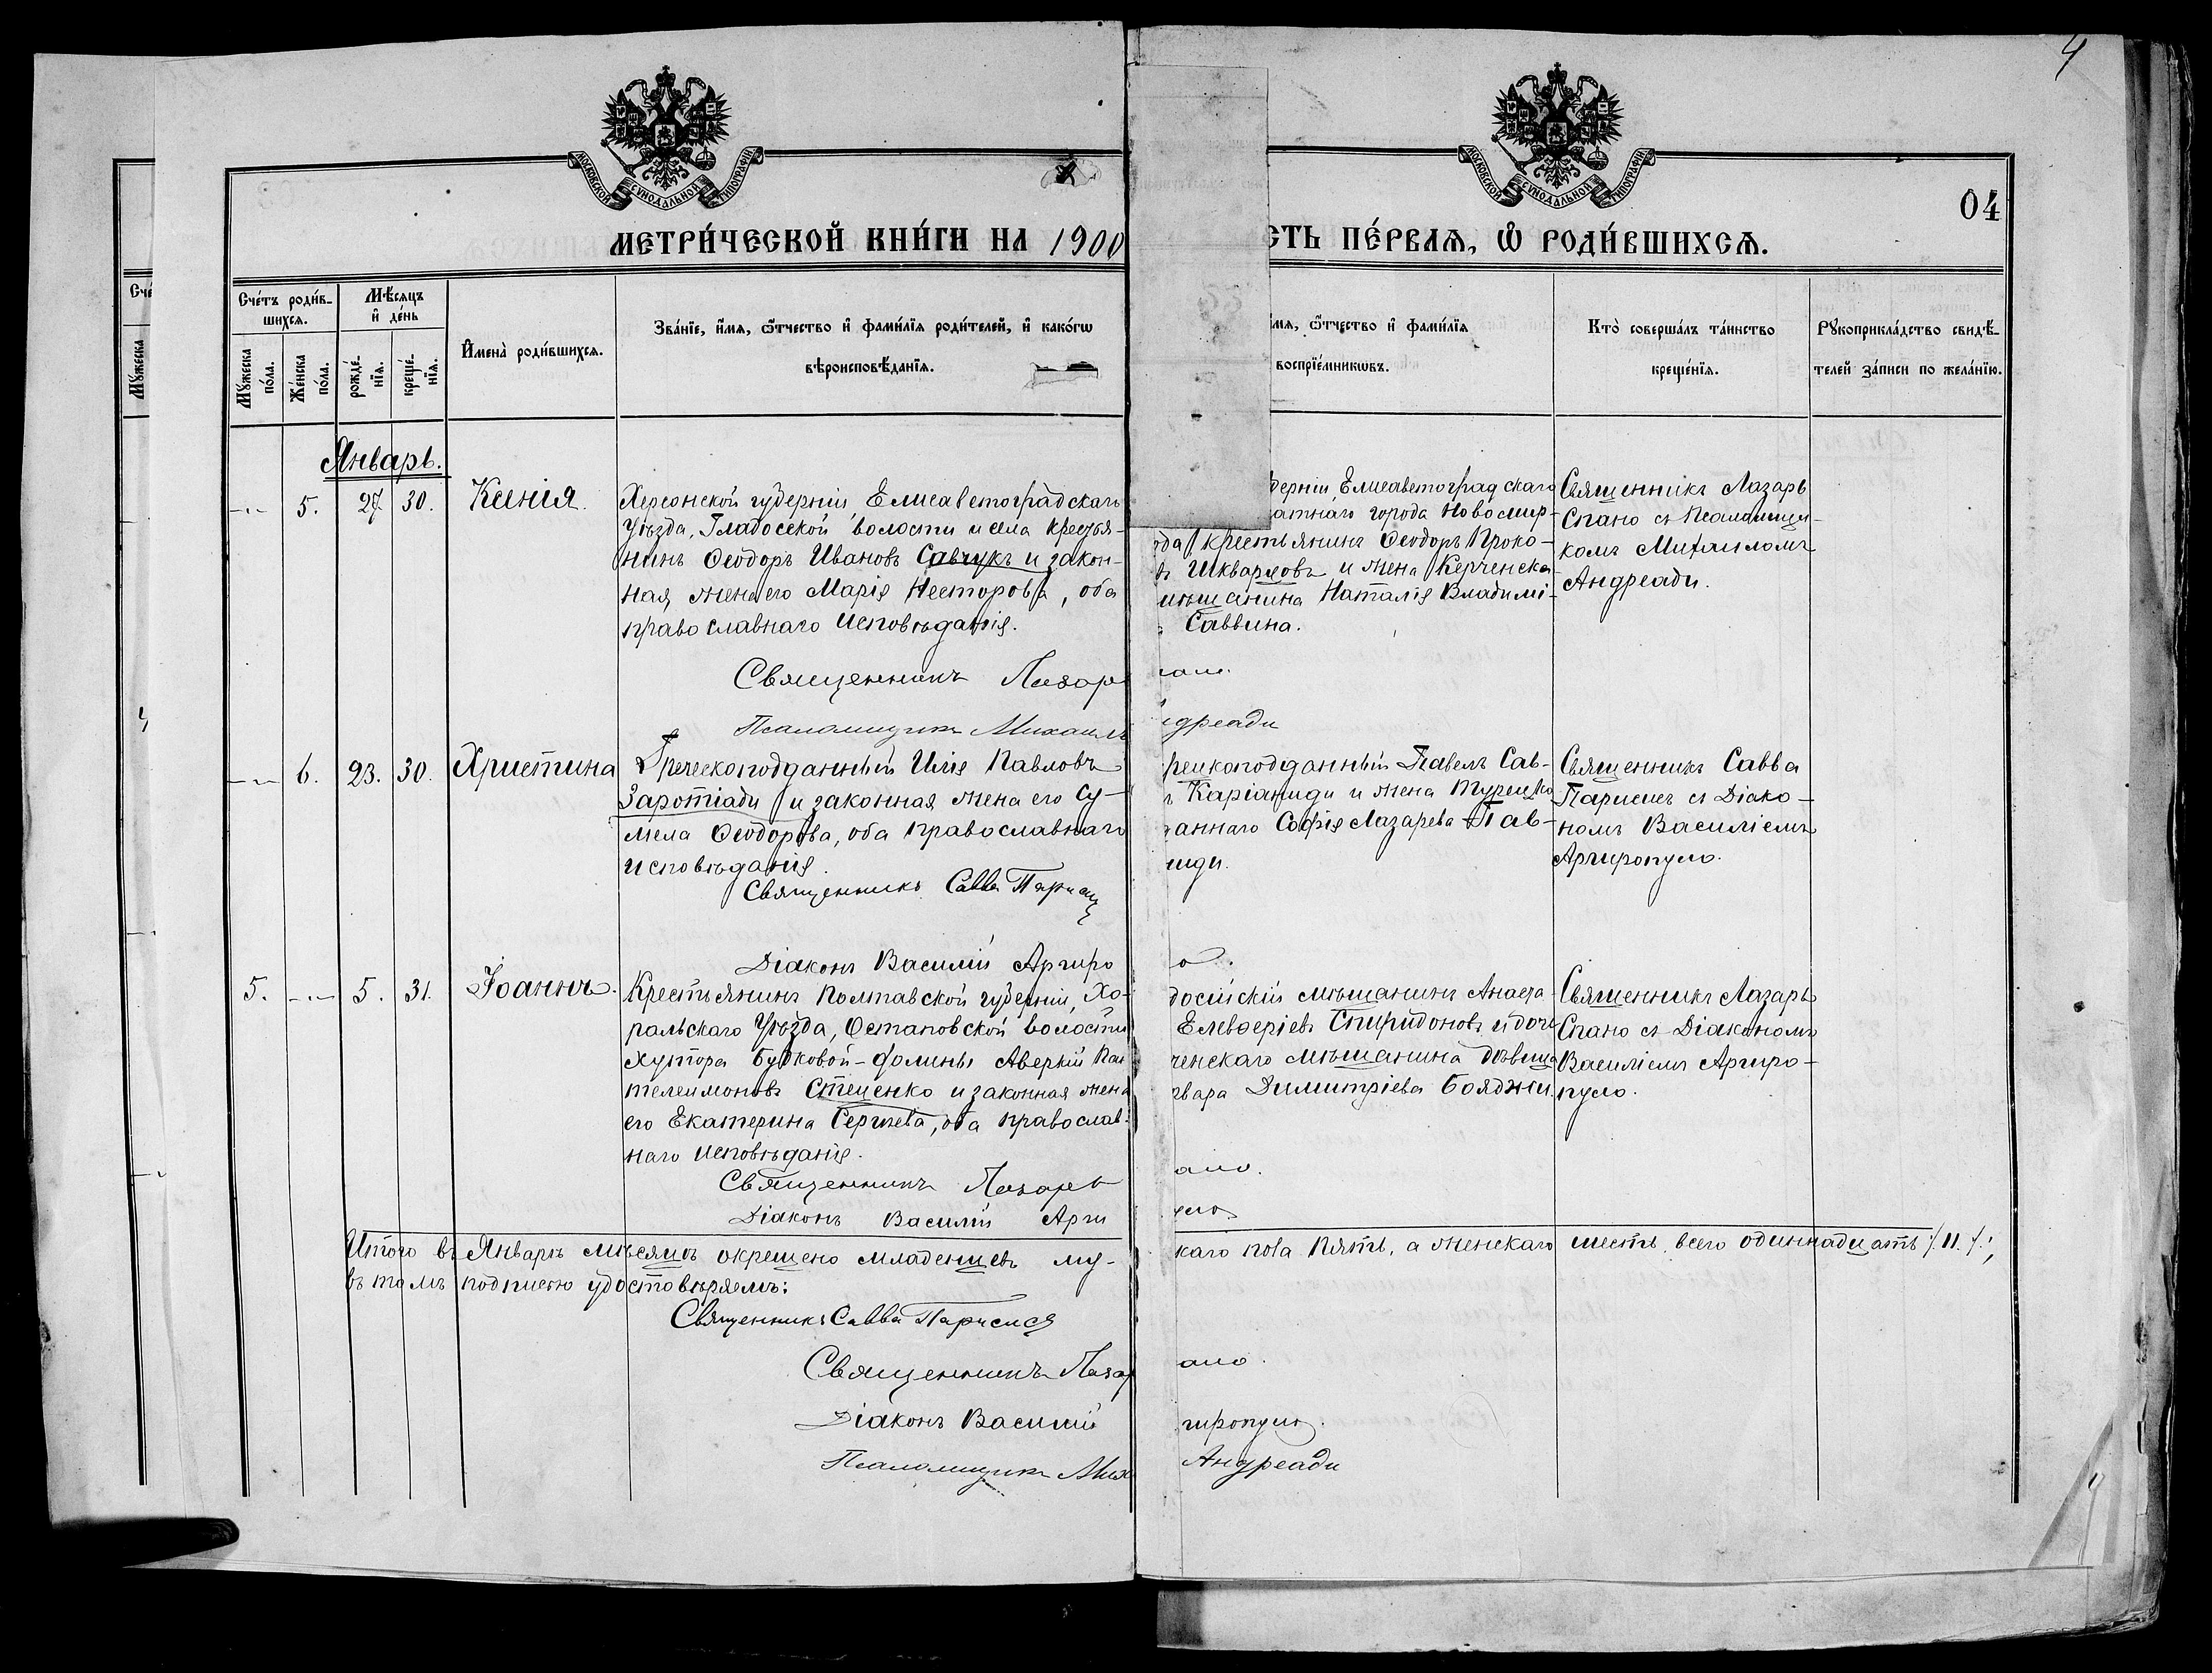 4
МОСКОВСКОЙ СУНОДАЛЬНОЙ ТИПОГРАФІИ
МОСКОВСКОЙ СУНОДАЛЬНОЙ ТИПОГРАФІИ
04
МЕТРИ́ЧЕСКОЙ КНИ́ГИ НА 1900
СТЬ ПЕ́РВАѦ, Ѡ҆ РОДИ́ВШИХСѦ.
Сче́тъ роди́в-
шихсѧ.
Мѣ́сѧцъ
и҆ де́нь
Мꙋ́жеска
по́ла.
Же́нска
по́ла.
рожде́-
нїѧ.
креще́-
нїѧ.
И҆мена̀ роди́вшихсѧ.
Зва́нїе, и҆́мѧ, ѻ҆́тчество и҆ фами́лїѧ роди́телей, и҆ како́гѡ
вѣроисповѣ́данїѧ.
мѧ, ѻ҆́тчество и҆ фами́лїѧ
воспрїе́мникѡвъ.
Кто̀ соверша́лъ та́инство
креще́нїѧ.
Рꙋкоприкла́дство свидѣ́-
телей за́писи по жела́нїю.
Январь.
5. 27 30. Ксенія.
Херсонской губерніи, Елисаветоградскаго
Уѣзда, Гладосской волости и села крестья-
нинъ Ѳеодоръ Ивановъ Савчукъ и закон-
ная жена его Марія Несторова, оба
православнаго исповѣданія.
Священникъ Лазар
Псаломщикъ Михаилъ
берніи, Елисаветоградскаго
атнаго города Новомир-
ода, крестьянинъ Ѳеодоръ Проко-
въ Шкваровъ и жена Керченска
мѣщанина Наталія Владимі-
Саввина.
ндреади
Священникъ Лазарь
Спано съ Псаломщи-
комъ Михаиломъ
Андреади.
6. 23. 30. Христина
Греческоподданный Илія Павловъ
Заротіади и законная жена его Су-
мела Ѳеодорова, оба православнаго
исповѣданія.
Священникъ Савва Парисис
Діаконъ Василій Аргиро
рецкоподданный Павелъ Сав-
Каріаниди и жена Турецко
даннаго Софія Лазарева Пав-
иди.
Священникъ Савва
Парисисъ съ Діако-
номъ Василіемъ
Аргиропуло.
5. 5. 31. Іоаннъ.
Крестьянинъ Полтавской губерніи, Хо-
ральскаго Уѣзда, Остаповской волости
хутора Бутковой-Долины Аверкій Пан
телеимоновъ Стеценко и законная жена
его Екатерина Сергіева, оба православ-
наго исповѣданія.
Священникъ Лазарь
Діаконъ Василій Арги
досійскій мѣщанинъ Анаста
Елевѳеріевъ Спиридоновъ и дочь
ченскаго мѣщанина дѣвица
рвара Димитріева Бояджи.
ано.
уло
Священникъ Лазарь
Спано съ Діакономъ
Василіемъ Аргиро-
пуло.
Итого въ Январѣ мѣсяцѣ окрещено младенцевъ му-
каго пола пять, а женскаго шесть, всего одиннадцать /. 11. /.;
въ томъ подписью удостовѣряемъ:
Священникъ Савва Парисисъ
Священникъ Лазар
ано.
Діаконъ Василій
гиропуло.
Псаломщикъ Мих
Андреади